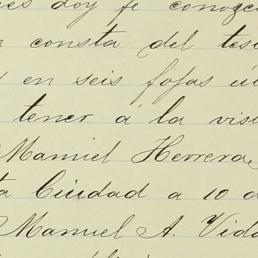 doy fe conozco
consta del tes
en seis fojas ú
tener á la vis
Manuel Herrera,
ta Ciudad a 10 d
Manuel A. Vida